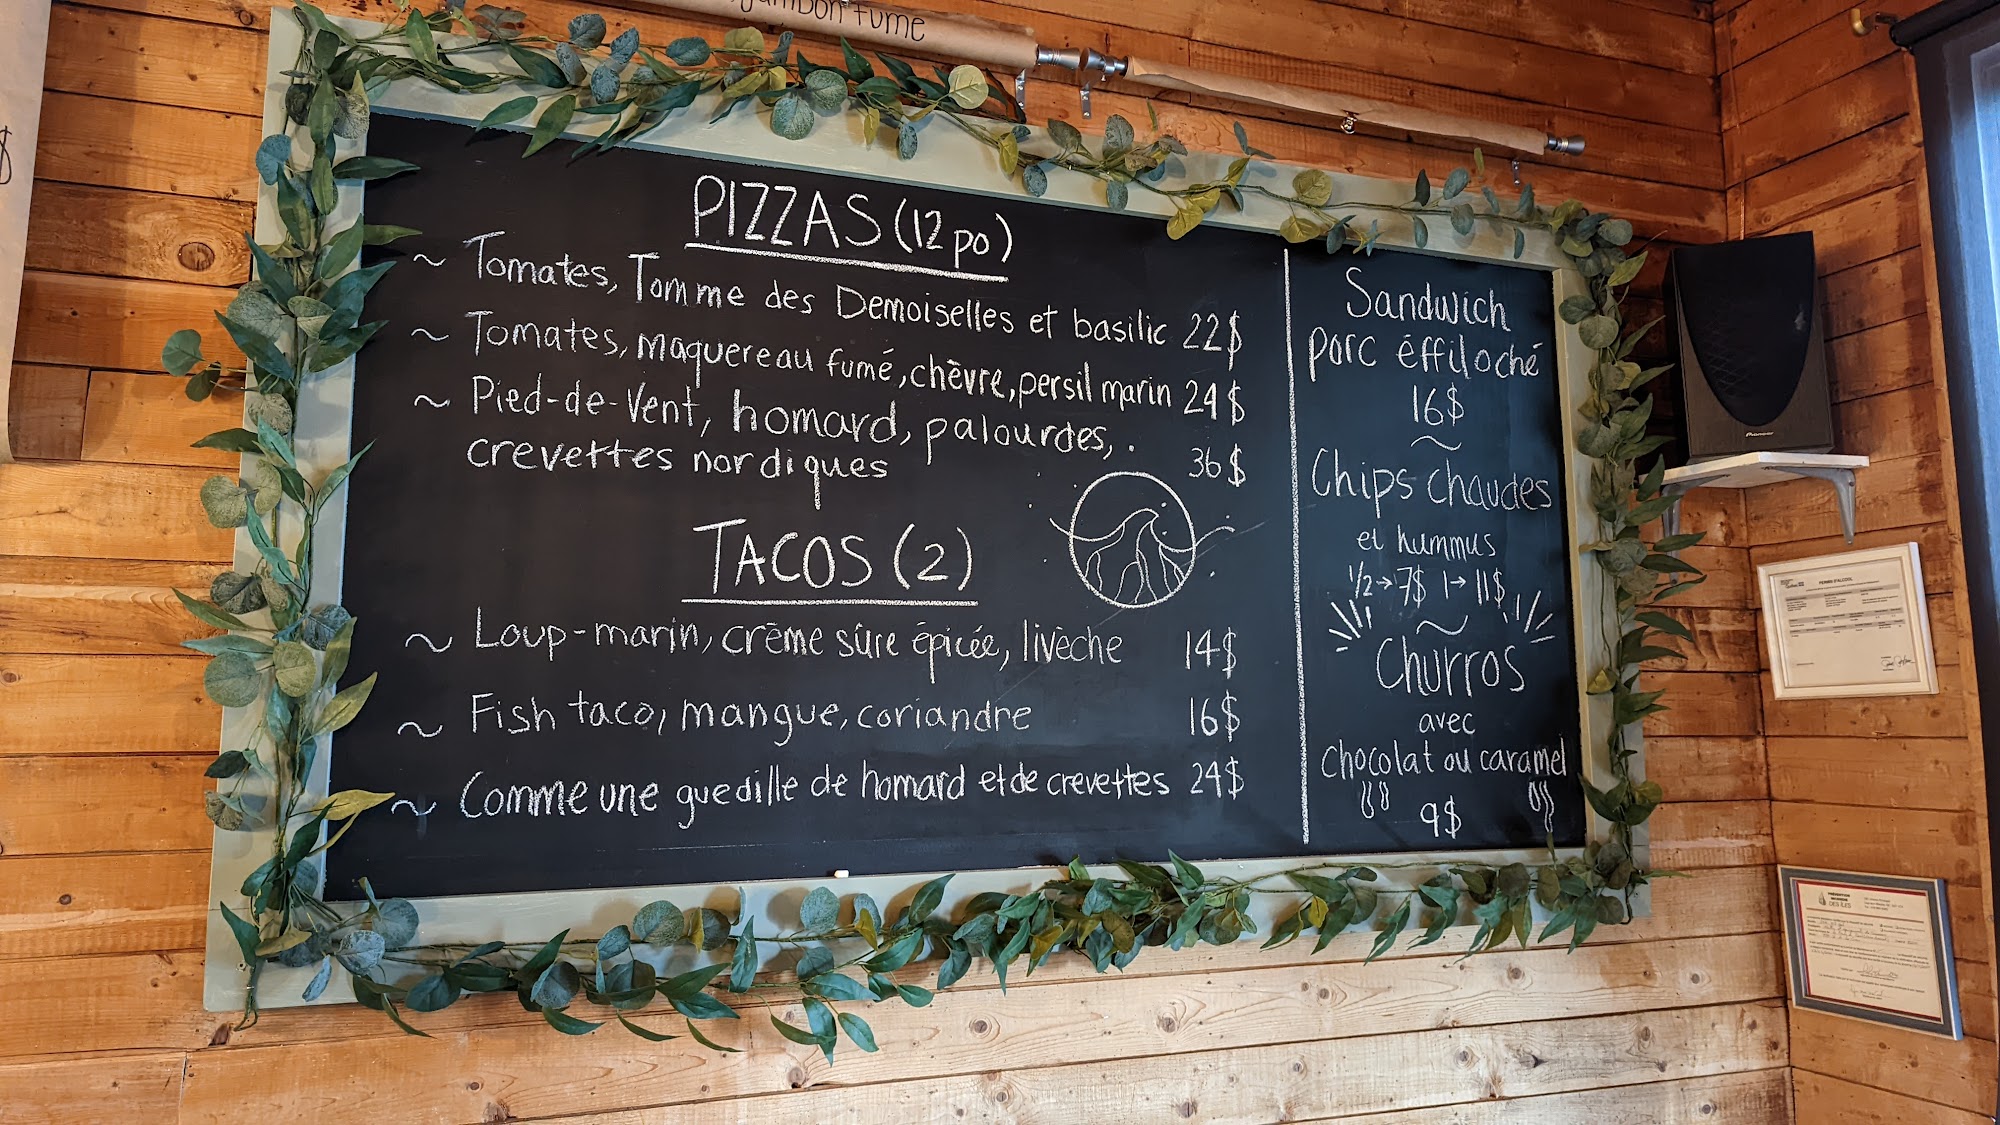 jambon fumé
$
PIZZAS (12 po)
~ Tomates, Tomme des Demoiselles et basilic 22$
~ Tomates, maquereau fumé, chèvre, persil marin 24$
~ Pied-de-Vent, homard, palourdes,
crevettes nordiques 36$
TACOS (2)
~ Loup-marin, crème sûre épicée, livèche 14$
~ Fish taco, mangue, coriandre 16$
~ Comme une guedille de homard et de crevettes 24$
Sandwich
porc éffiloché
16$
~
Chips chaudes
et hummus
1/2→7$ 1→11$
~
Churros
avec
chocolat ou caramel
9$
Pioneer
PERMIS D'ALCOOL
PRÉVENTION
DES ÎLES